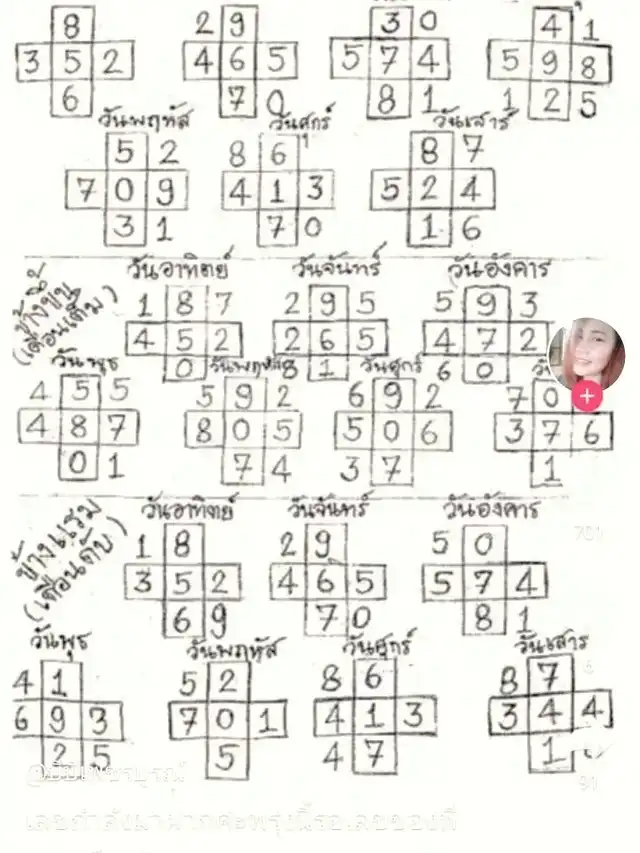 8 2 9 3 0 4 1
3 5 2 4 6 5 5 7 4 5 9 8
6 7 0 8 1 1 2 5
วันพฤหัส วันศุกร์ วันเสาร์
5 2 8 6 8 7
7 0 9 4 1 3 5 2 4
3 1 7 0 1 6
ข้างขึ้น
(เดือนเต็ม)
วันอาทิตย์ วันจันทร์ วันอังคาร
1 8 7 2 9 5 5 9 3
4 5 2 2 6 5 4 7 2
0 8 1 6 0
วันพุธ วันพฤหัส วันศุกร์
4 5 5 5 9 2 6 9 2 7 0
4 8 7 8 0 5 5 0 6 3 7 6
0 1 7 4 3 7 1
ข้างแรม
(เดือนดับ)
วันอาทิตย์ วันจันทร์ วันอังคาร
1 8 2 9 5 0
3 5 2 4 6 5 5 7 4
6 9 7 0 8 1
วันพุธ วันพฤหัส วันศุกร์ วันเสาร์
4 1 5 2 8 6 8 7
6 9 3 7 0 1 4 1 3 3 4 4
2 5 5 4 7 1